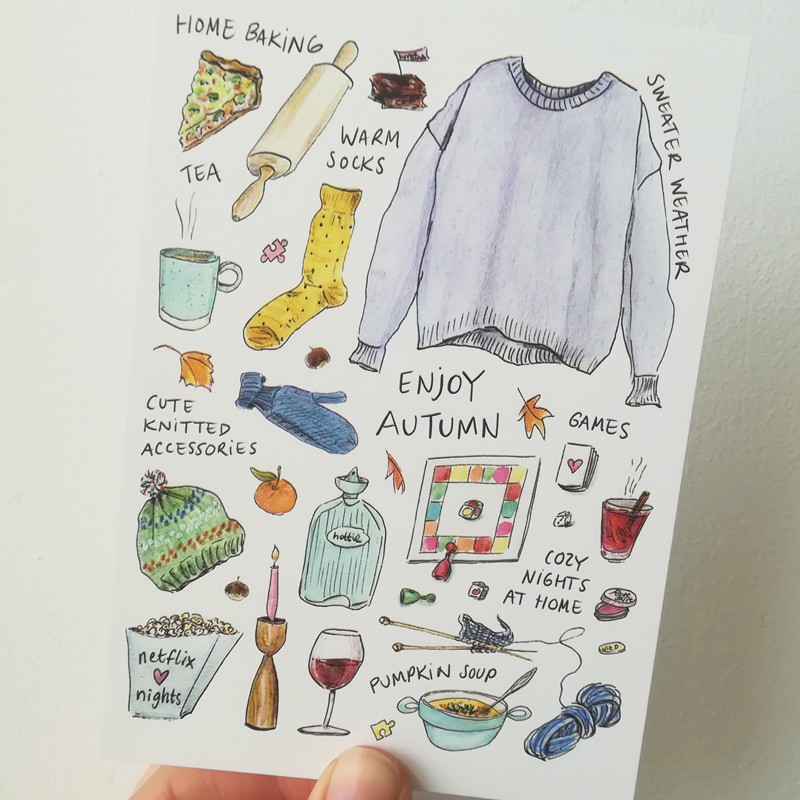 HOME BAKING
WARM
SOCKS
TEA
SWEATER WEATHER
ENJOY
AUTUMN
GAMES
CUTE
KNITTED
ACCESSORIES
hottie
COZY
NIGHTS
AT HOME
netflix
nights
PUMPKIN SOUP